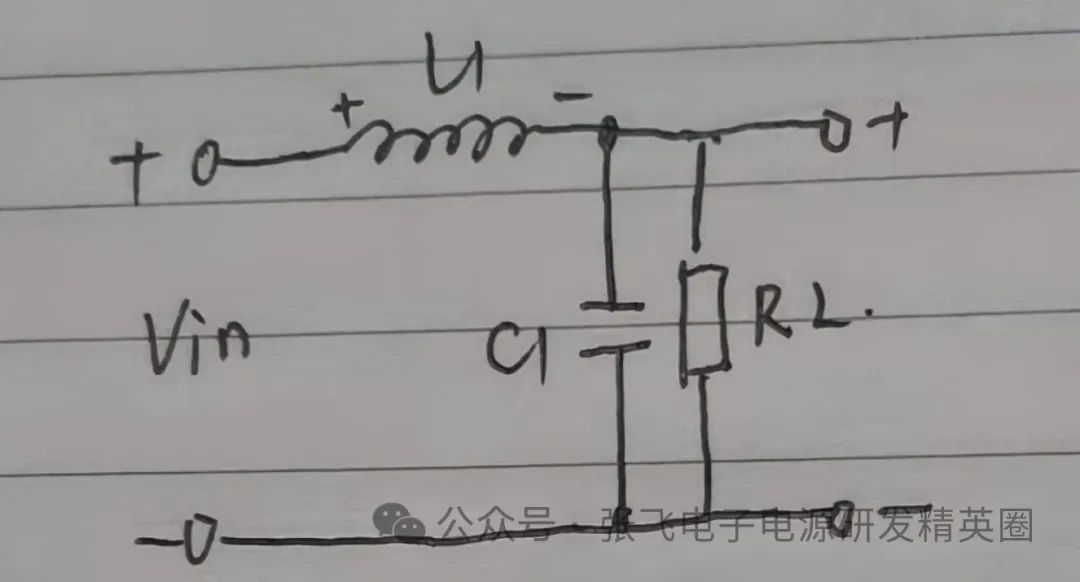 L1
+ -
+ +
Vin C1 RL.
- -
公众号 · 张飞电子电源研发精英圈